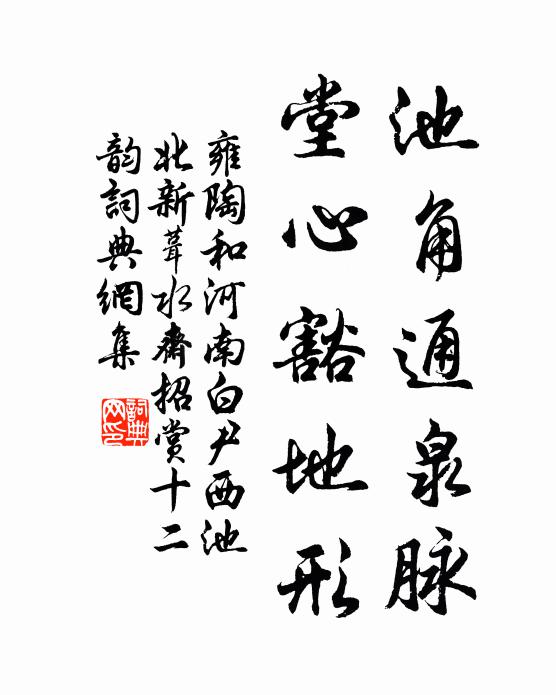 池角通泉脉
堂心豁地形
雍陶和河南白尹西池
北新葺水齋招賞十二
韵詞典網集
詞典
网印